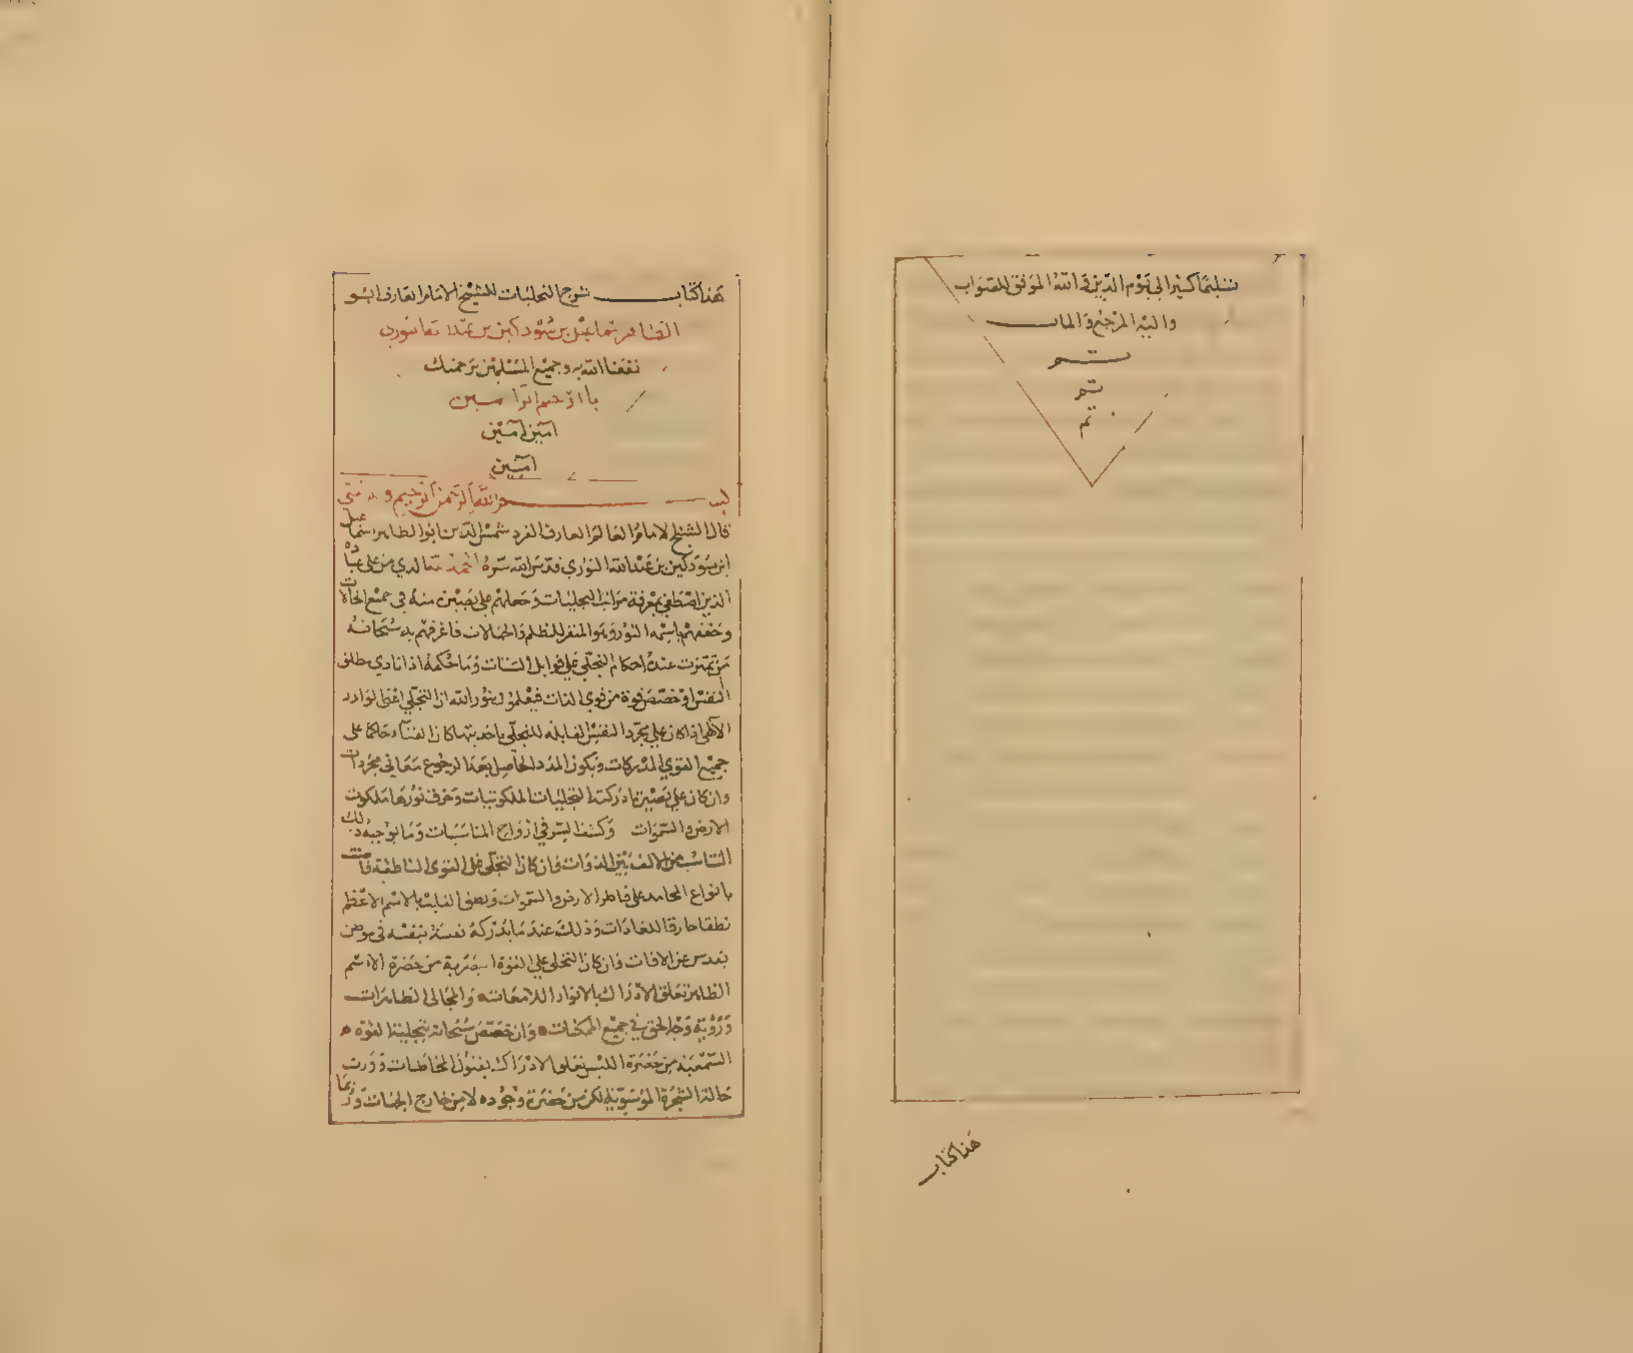 تسليما كثيرا الى يوم الدين والله الموفق للصواب
واليه المرجع والماب
تم
تم
تم
هذا كتاب
هذا كتاب شرح التجليات للشيخ الامام العارف ابو
الطاهر اسماعيل بن سودكين بن عبد الله النوري
نفعنا الله به وجميع المسلمين برحمتك
يا ارحم الراحمين
امين امين
امين
بسم الله الرحمن الرحيم وبه ثقتي
قال الشيخ الامام العالم العارف الفرد شمس الدين ابو الطاهر اسماعيل
ابن سودكين بن عبد الله النوري قدس الله سره الحمد لله الذي من على عباده
الذين اصطفى بمعرفة مراتب التجليات وجعلهم على بصيرة منه في جميع الحالات
وخصهم باسمه النور وهو المنفر للظلم والجهالات فاعرفهم به سبحانه
من تميزت عنده احكام التجلي على قوابل الذات وما حكمه اذا نادي طلق
النفس او خصص قوة من قوى الذات فيعلموا بنور الله ان التجلي اعني الوارد
الالهي اذا كان على مجرد النفس القابلة للتجلي باحديتها كان الفناء حاكما على
جميع القوي المدركات ويكون المدد الحاصل بعد الرجوع معاني مجردات
وان كان على بصيرة ادركت التجليات الملكوتيات وخرق نورها ملكوت
الارض والسموات وكشف السر في ازواج المناسبات وما توجبه ذلك
التناسب من الالف بين الذوات فان كان التجلي على القوى الناطقة فاضت
بانواع المحامد على فاطر الارض والسموات ونطق القلب بالاسم الاعظم
نطقا خارقا للعادات وذلك عند ما يدركه نفسه بنفسه في موطن
تقدس عن الافات وان كان التجلي على القوة البصرية من حضرة الاسم
الظاهر تعلق الادراك بالانوار اللامعات والمجالى الظاهرات
ورؤية وجه الحق في جميع الممكنات وان خصص سبحانه بتجليه القوة
السمعية من حضرة اللبس تعلق الادراك بفنون المخاطبات وورت
حالة الشجرة الموسوية لكن من حضرة وجوده لا من خارج الجهات وربما